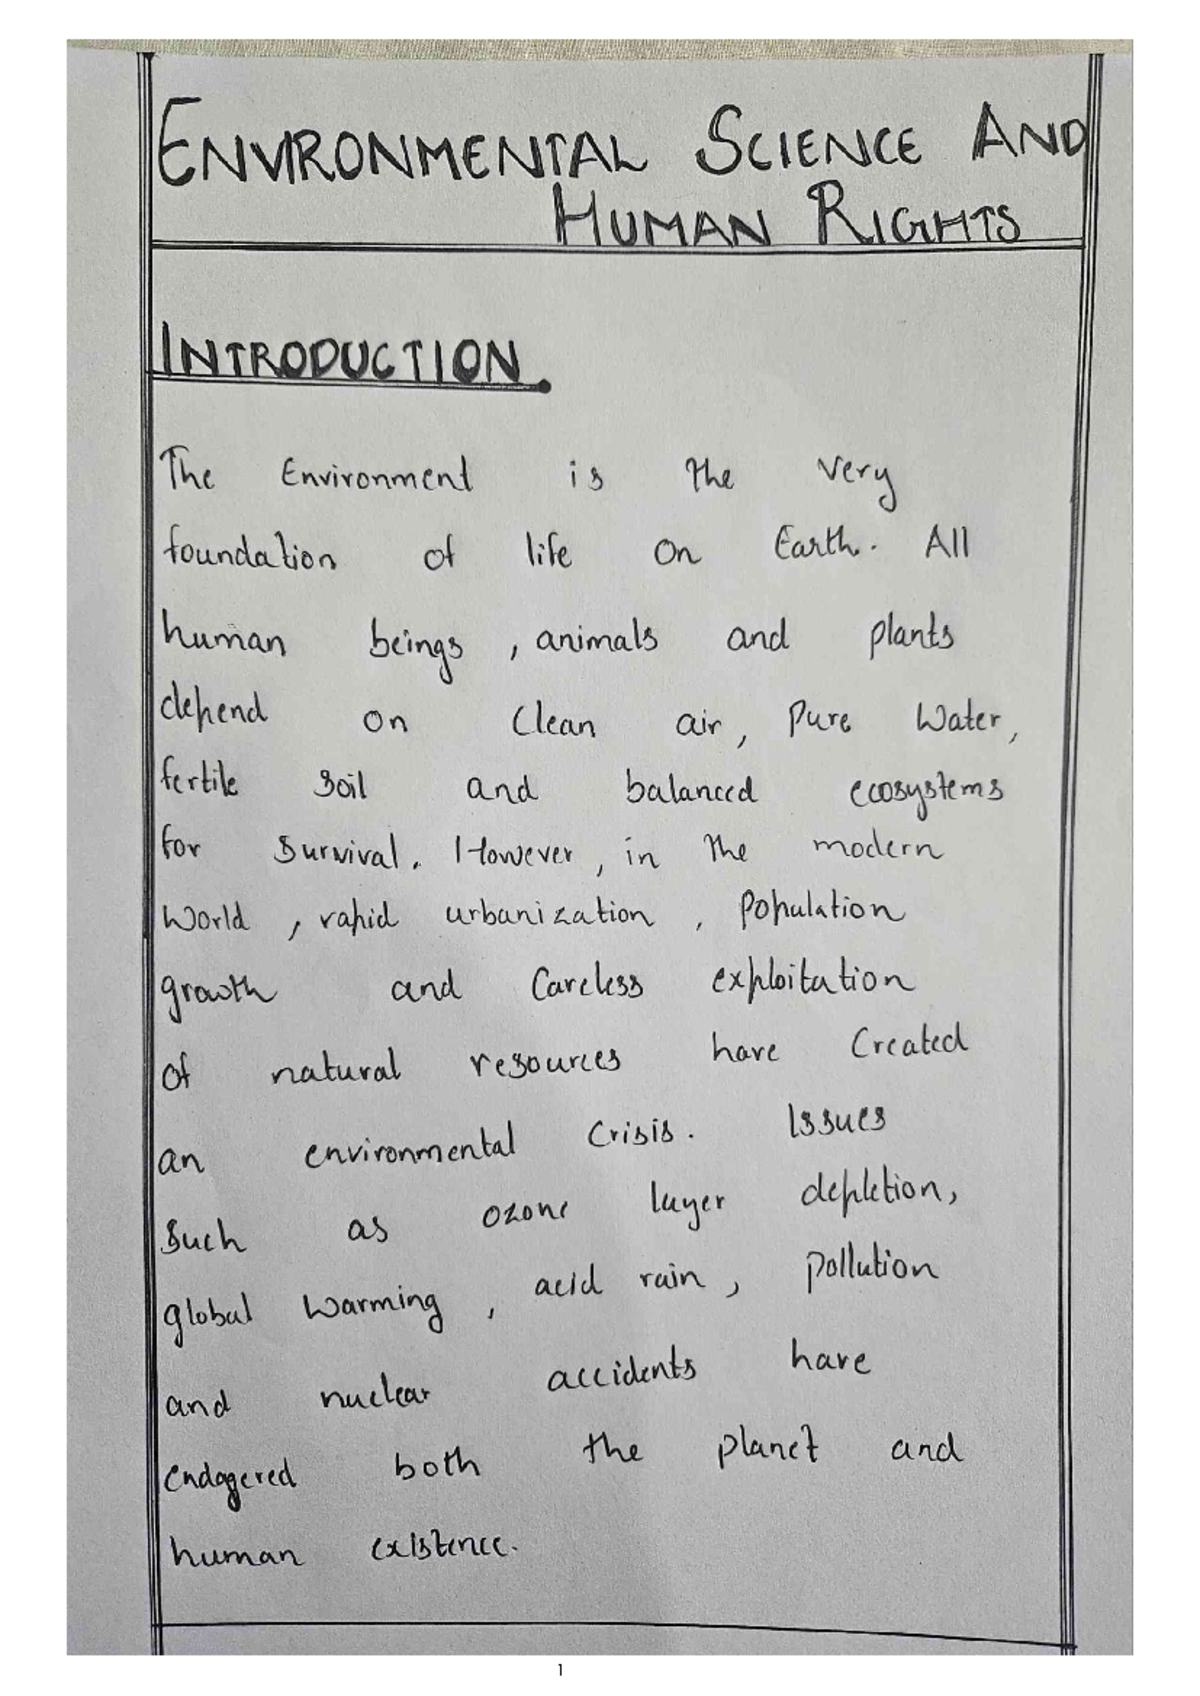 ENVIRONMENTAL SCIENCE AND
HUMAN RIGHTS
INTRODUCTION.
The Environment is the very
foundation of life on Earth. All
human beings, animals and plants
depend on Clean air, Pure Water,
fertile Soil and balanced ecosystems
for Survival. However, in the modern
World, rapid urbanization, Population
growth and Careless exploitation
of natural resources have Created
an environmental Crisis. Issues
Such as ozone layer depletion,
global Warming, acid rain, Pollution
and nuclear accidents have
endagered both the planet and
human existence.
1